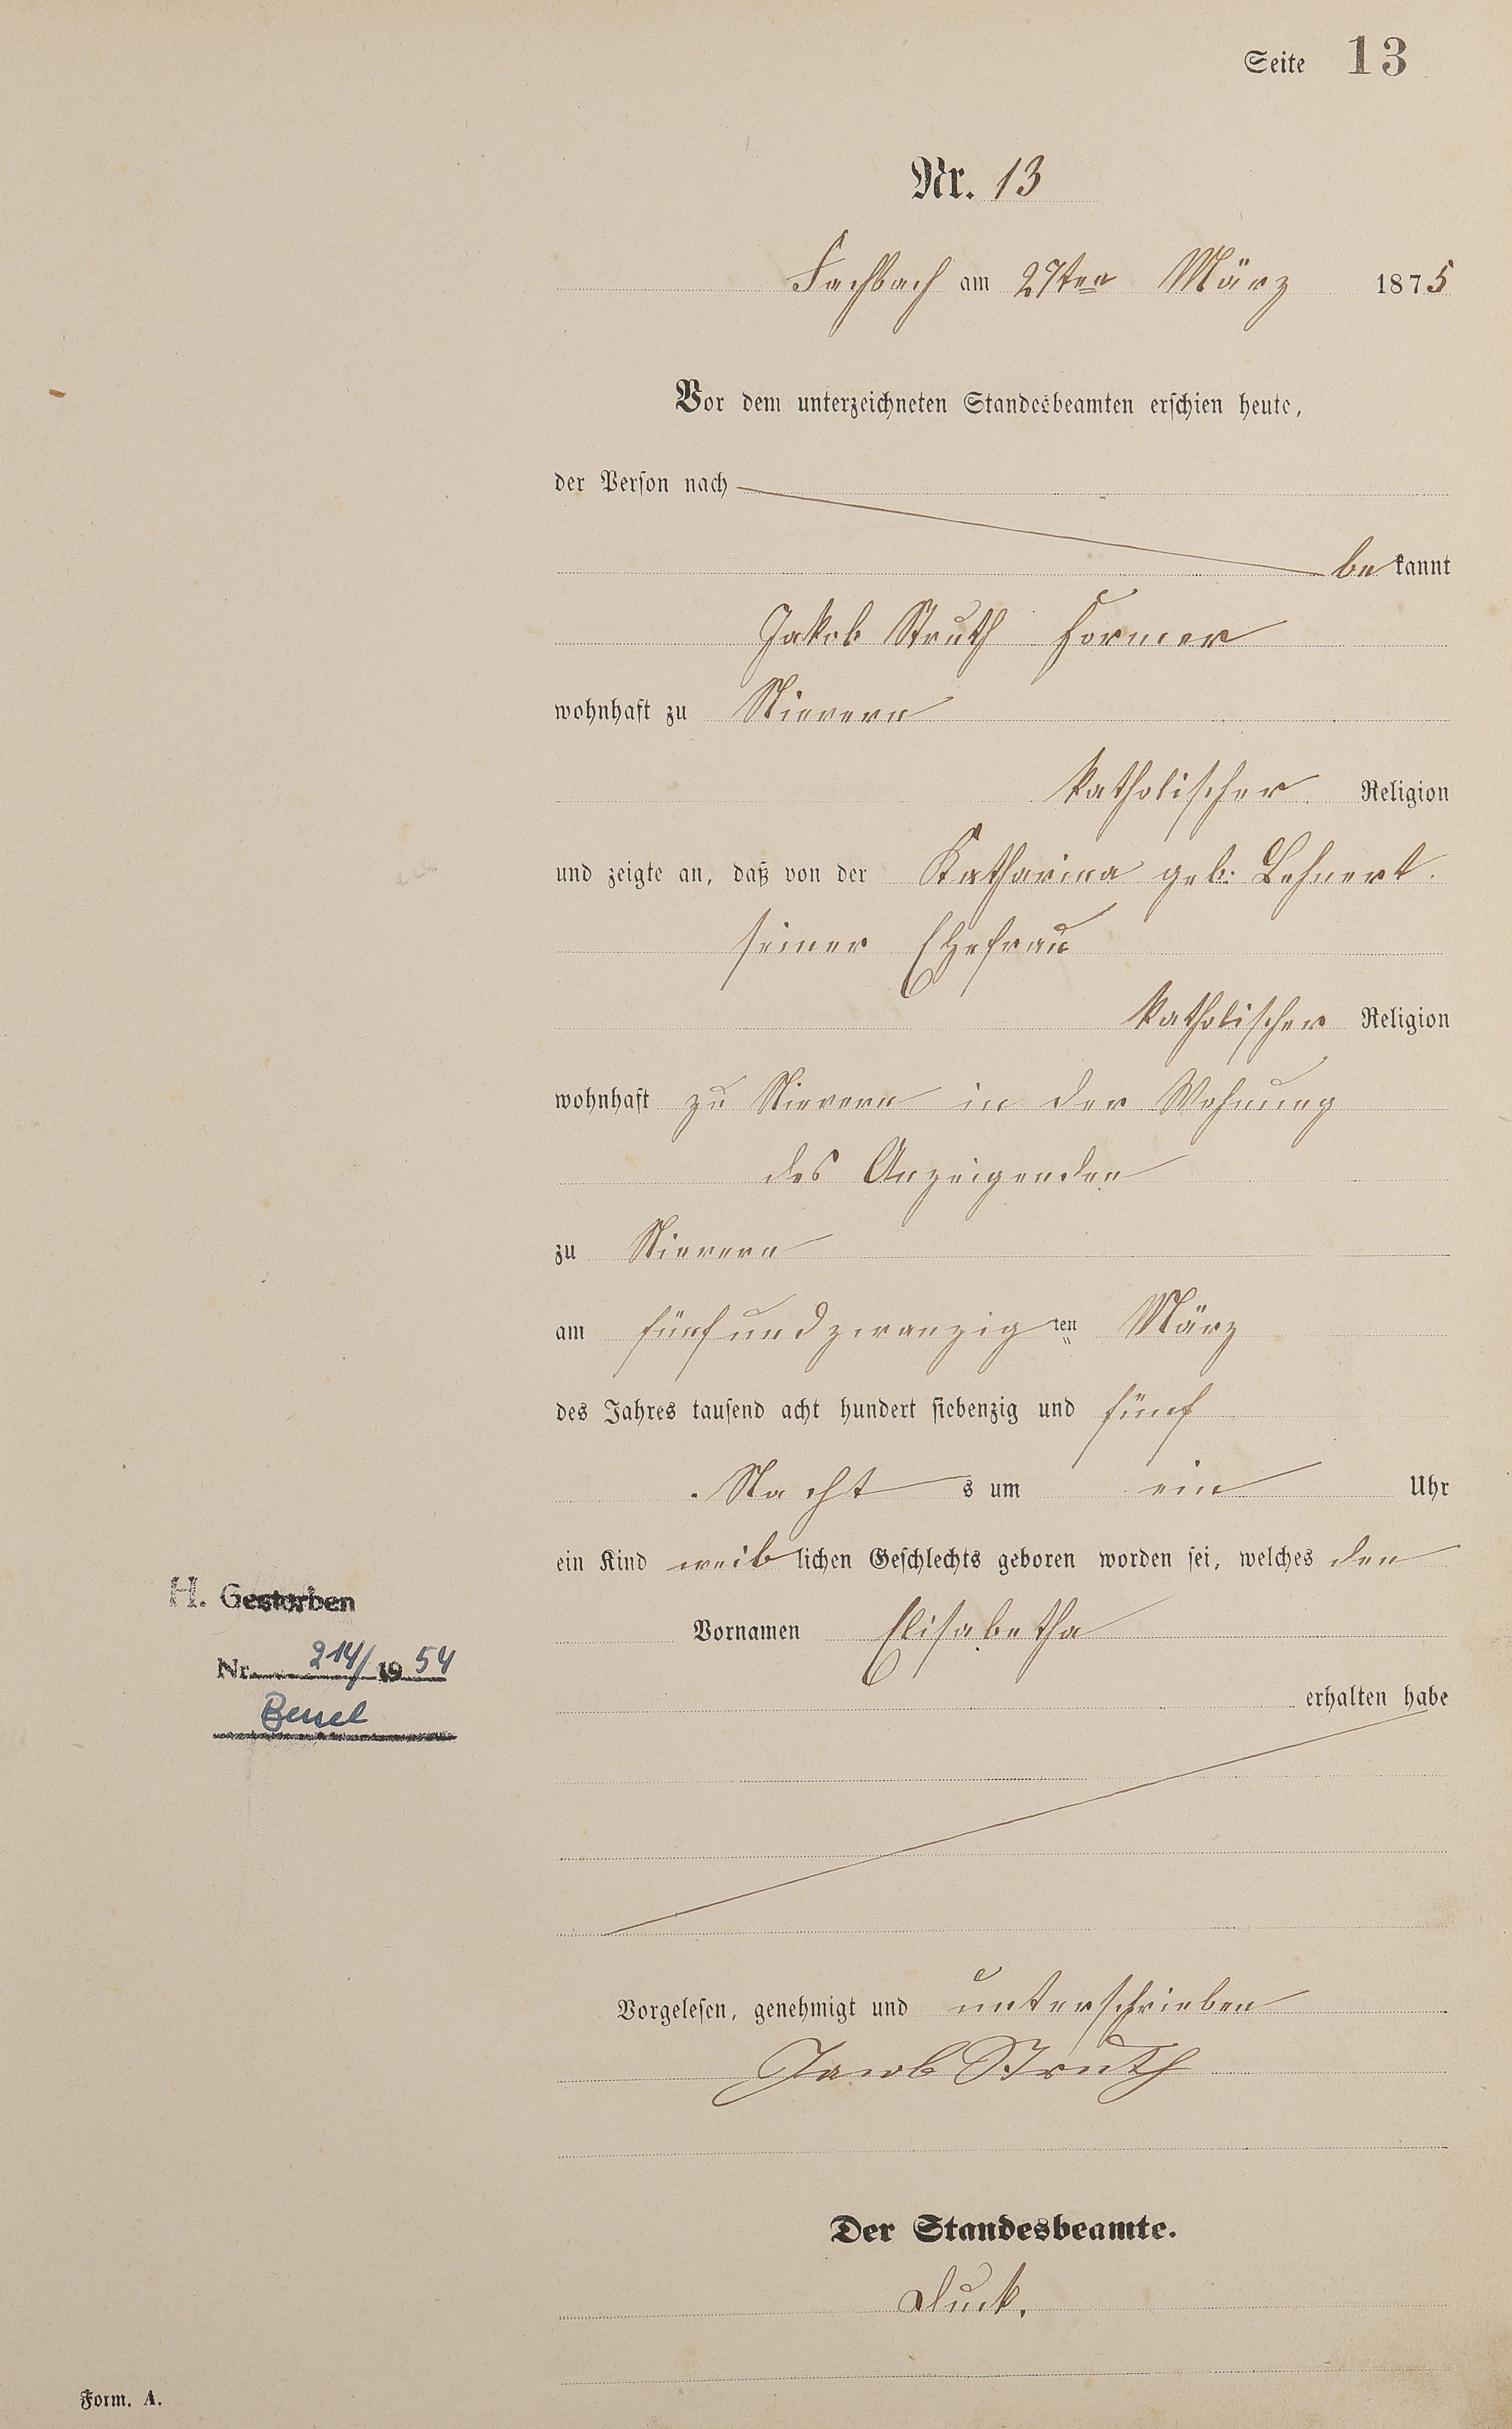 Seite 13
Nr. 13
Fachbach am 27ten März 1875
Vor dem unterzeichneten Standesbeamten erschien heute,
der Person nach
bekannt
Jakob Struth Former
wohnhaft zu Nievern
katholischer Religion
und zeigte an, daß von der Katharina geb: Lehnert.
seiner Ehefrau
katholischer Religion
wohnhaft zu Nievern in der Wohnung
des Anzeigenden
zu Nievern
am fünfundzwanzigten März
des Jahres tausend acht hundert siebenzig und fünf
Nachts um ein Uhr
ein Kind weiblichen Geschlechts geboren worden sei, welches den
Vornamen Elisabetha
erhalten habe
H. Gestorben
Nr. 214/1954
Vorgelesen, genehmigt und unterschrieben
Jacob Struth
Der Standesbeamte.
Form. A.